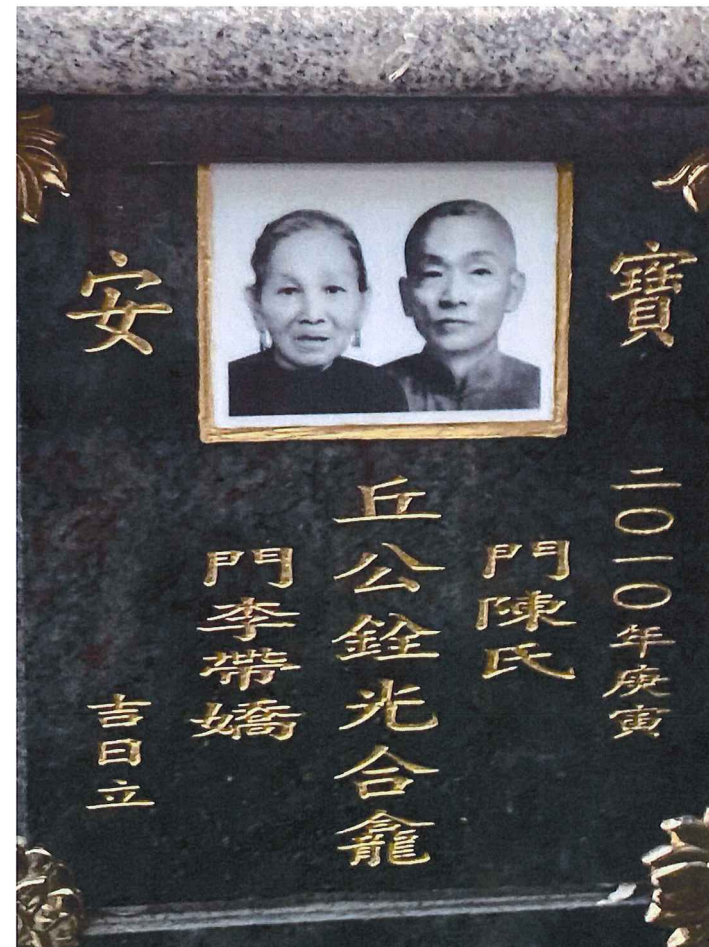 寶安
二〇一〇年庚寅
門陳氏
丘公銓光合龕
門李帶嬌
吉日立